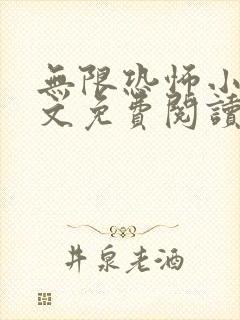 無限恐怖小
文免費閱讀
井泉老酒